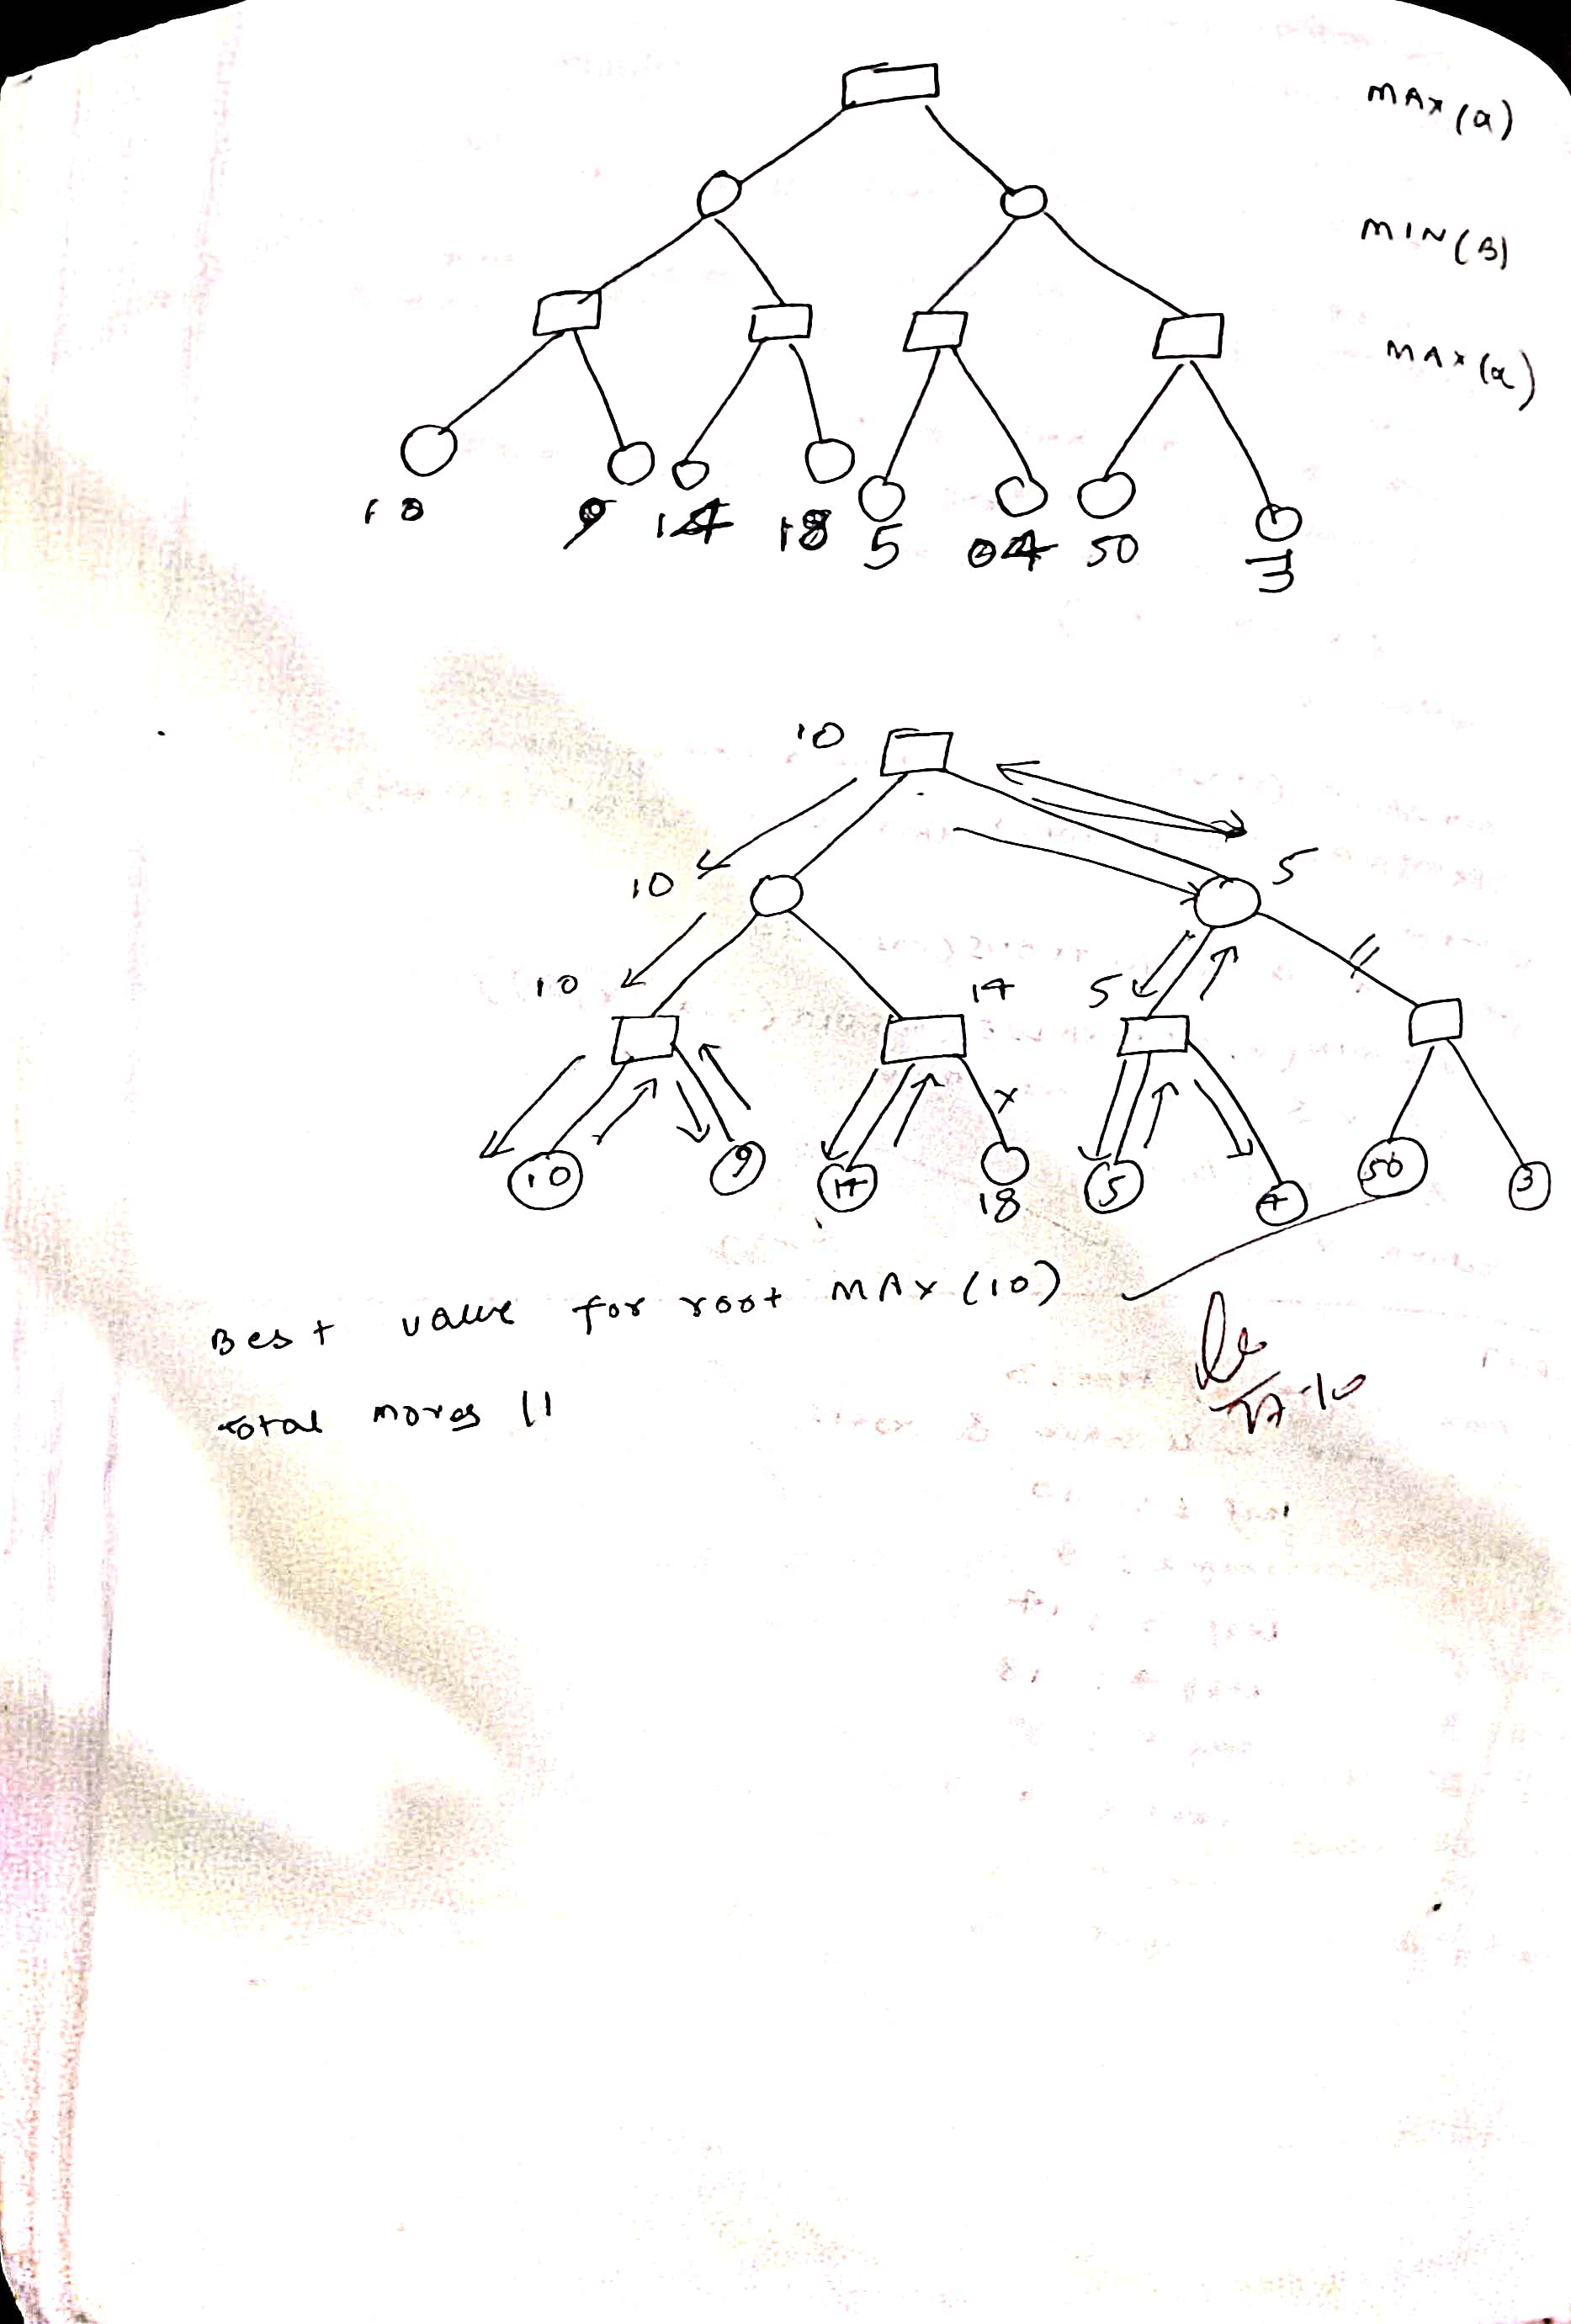 MAX(α)
MIN(B)
MAX(α)
10 9 14 18 5 04 50 3
10
10 5
10 14 5
10 9 14 18 5 4 50 3
Best value for root MAX (10)
total moves 11